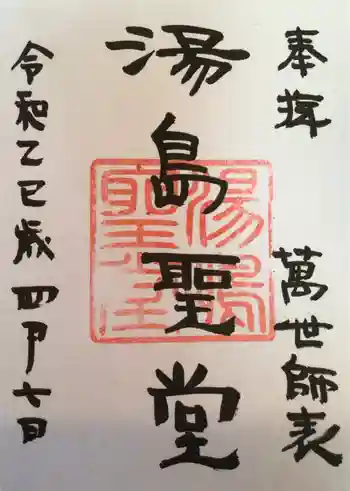 奉拝 萬世師表
湯島聖堂
湯島聖堂
令和乙巳歳四月六日